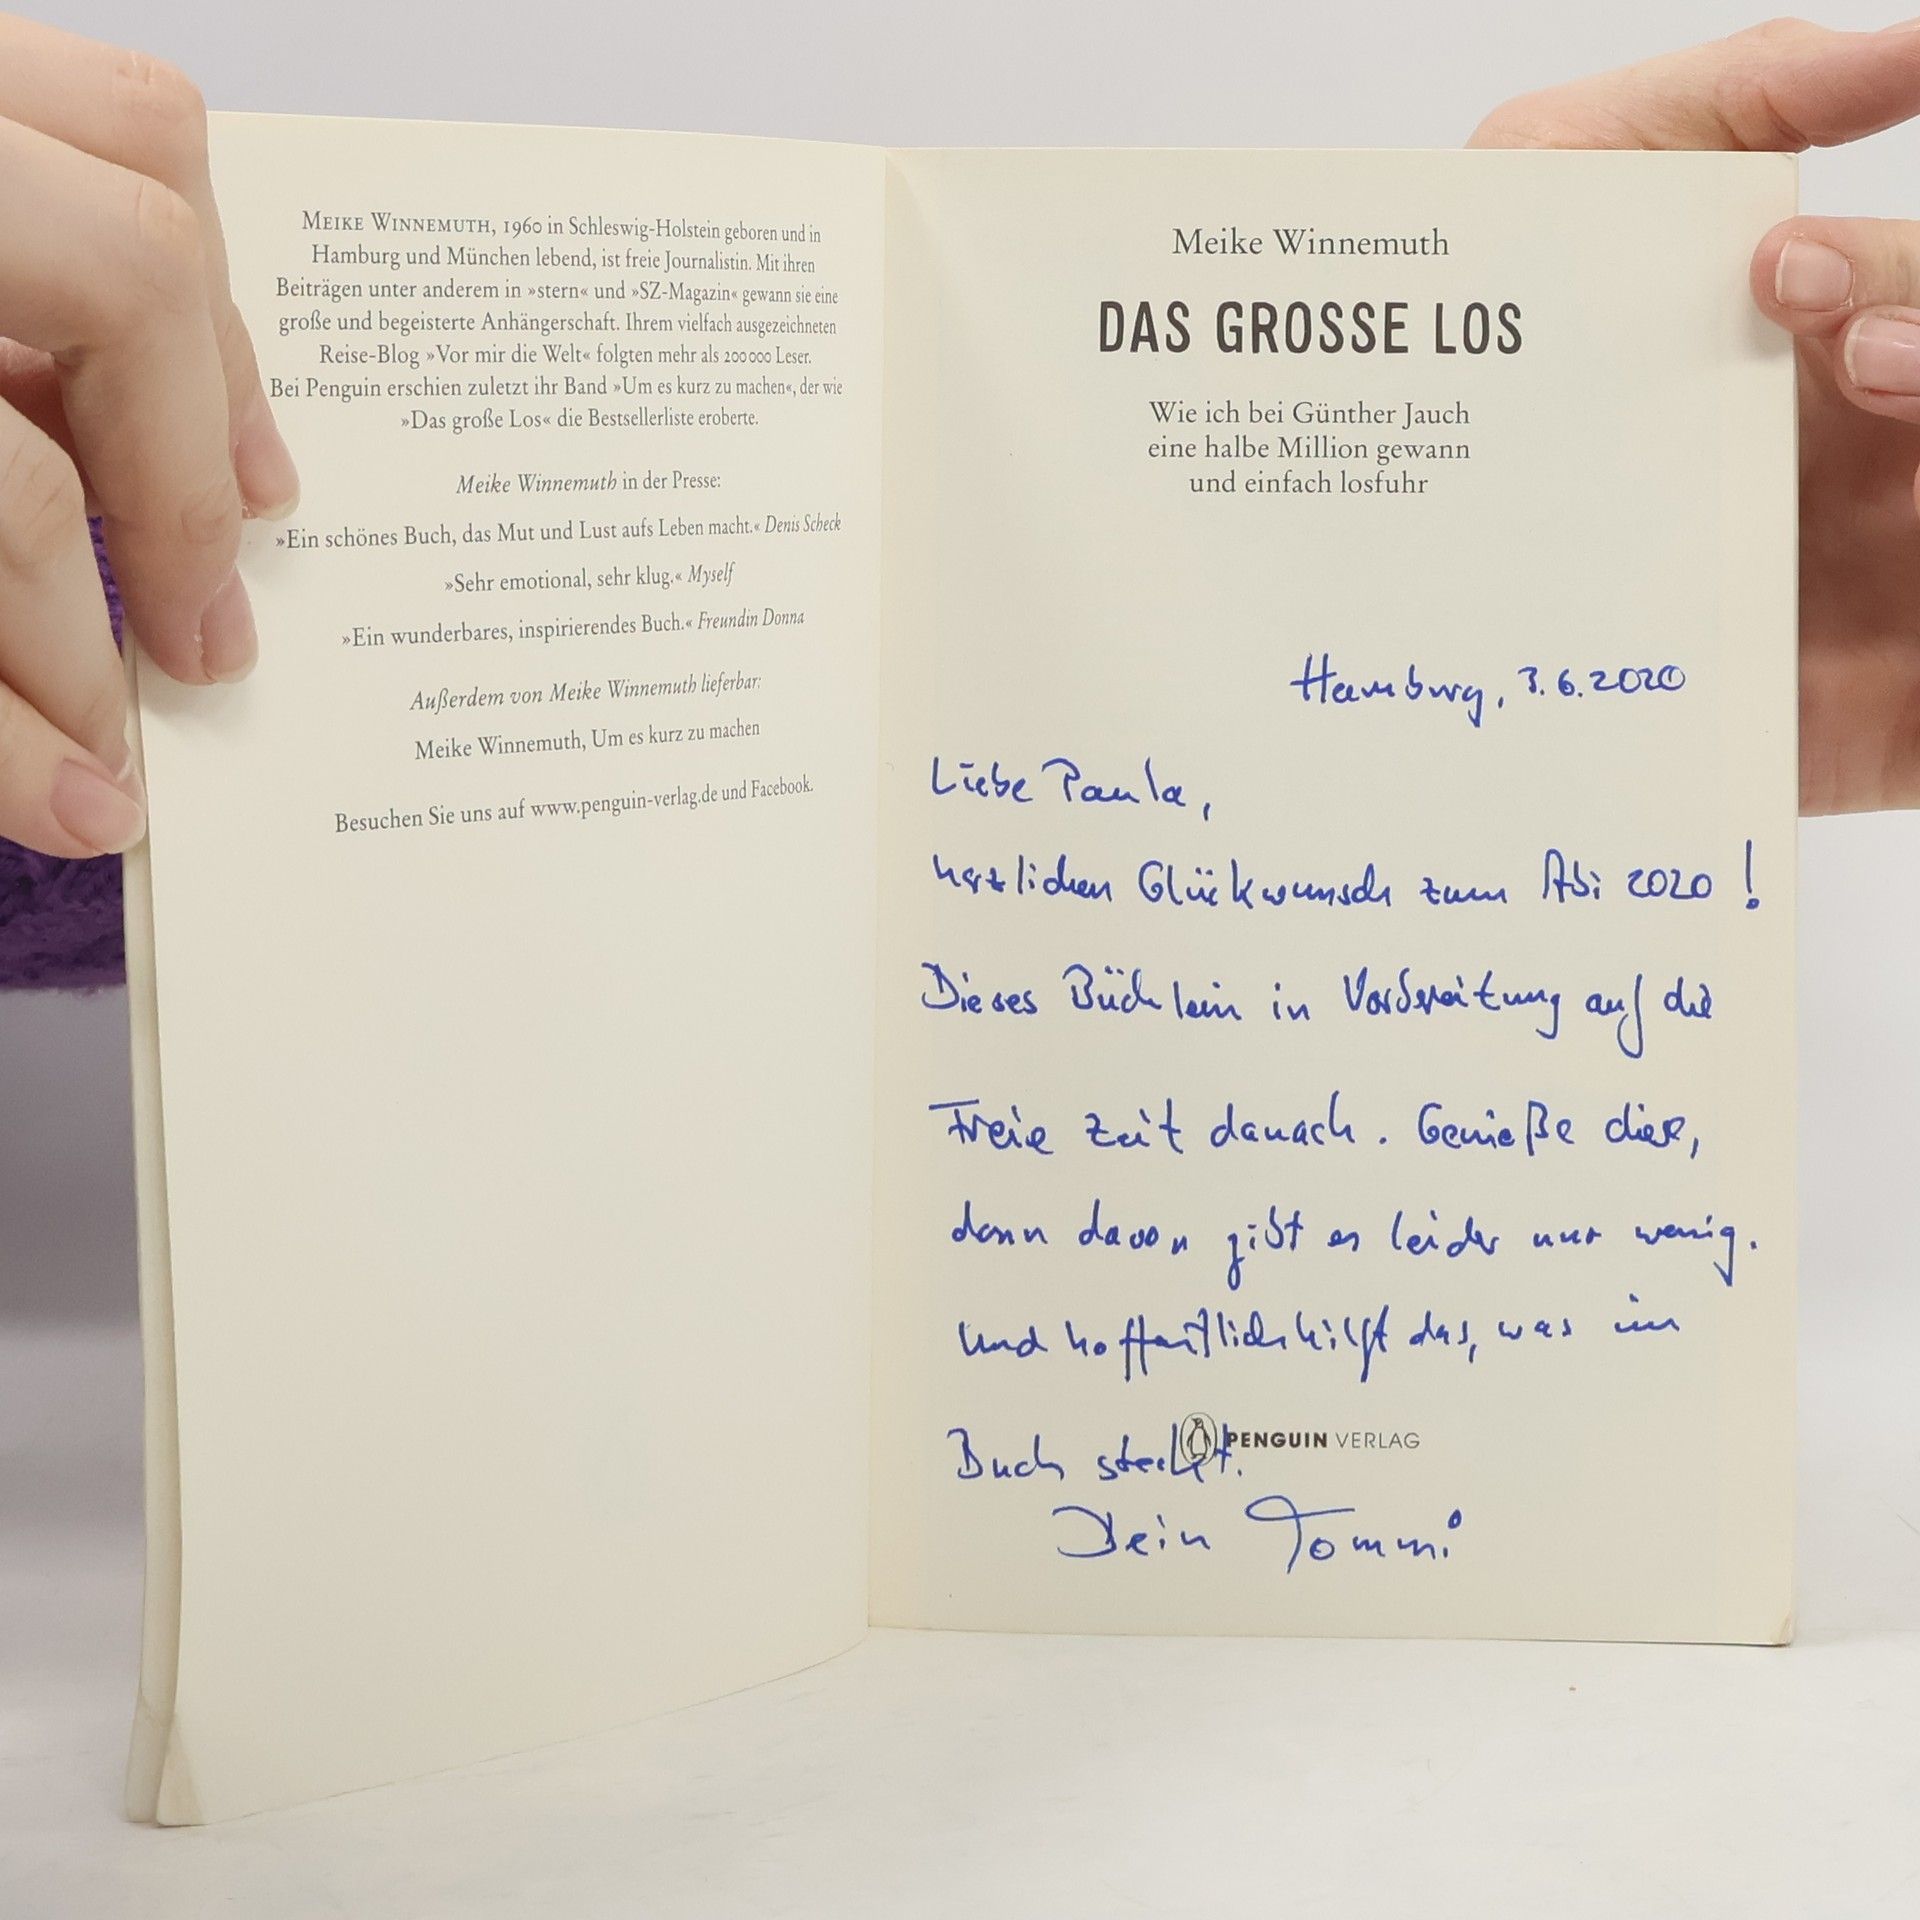 MEIKE WINNEMUTH, 1960 in Schleswig-Holstein geboren und in
Hamburg und München lebend, ist freie Journalistin. Mit ihren
Beiträgen unter anderem in »stern« und »SZ-Magazin« gewann sie eine
große und begeisterte Anhängerschaft. Ihrem vielfach ausgezeichneten
Reise-Blog »Vor mir die Welt« folgten mehr als 200 000 Leser.
Bei Penguin erschien zuletzt ihr Band »Um es kurz zu machen«, der wie
»Das große Los« die Bestsellerliste eroberte.
Meike Winnemuth in der Presse:
»Ein schönes Buch, das Mut und Lust aufs Leben macht.« Denis Scheck
»Sehr emotional, sehr klug.« Myself
»Ein wunderbares, inspirierendes Buch.« Freundin Donna
Außerdem von Meike Winnemuth lieferbar:
Meike Winnemuth, Um es kurz zu machen
Besuchen Sie uns auf www.penguin-verlag.de und Facebook.
Meike Winnemuth
DAS GROSSE LOS
Wie ich bei Günther Jauch
eine halbe Million gewann
und einfach losfuhr
Hamburg, 3.6.2020
Liebe Paula,
herzlichen Glückwunsch zum Abi 2020!
Dieses Büchlein in Vorbereitung auf die
Freie Zeit danach. Genieße diese,
denn davon gibt es leider nur wenig.
Und hoffentlich hilft das, was im
Buch steckt.
PENGUIN VERLAG
Dein Tommi